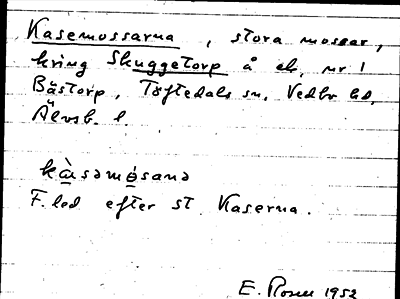 Kasemossarna, stora mossar,
kring Skuggetorp å ek. nr 1
Bästorp, Töftedals sn, Vedbo hd,
Älvsb. l.
kàsəmósanə
F. led efter st. Kaserna.
E. Rosen 1952